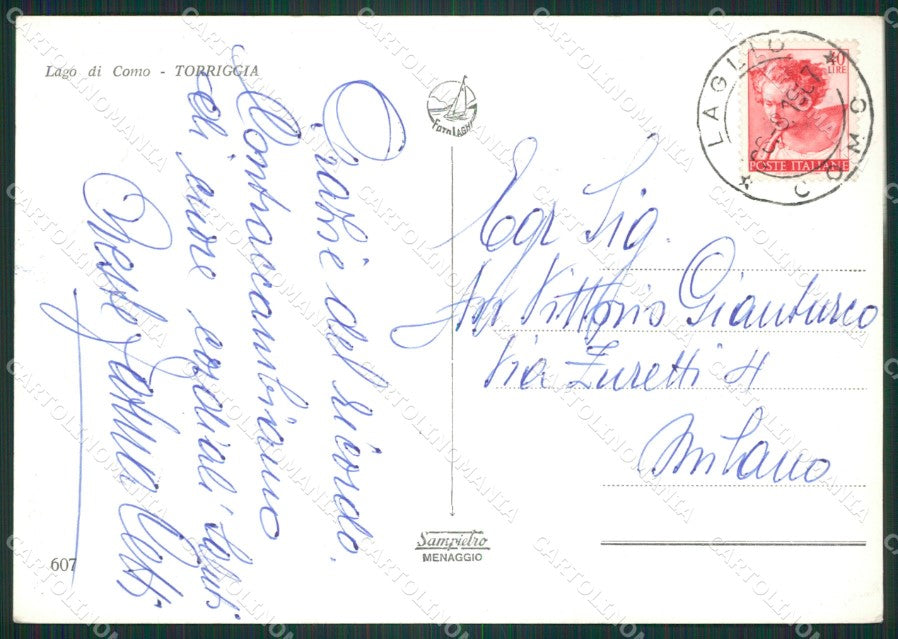 Lago di Como - TORRIGGIA
Grazie del ricordo.
Contraccambiamo
di cuore cordiali saluti
FOTO LAGHI
40
LIRE
POSTE ITALIANE
LAGLIO
COMO
Egr Sig.
Vittorio Gianturco
Via Zuretti 4
Milano
Sampietro
MENAGGIO
607
CARTOLINOMANIA